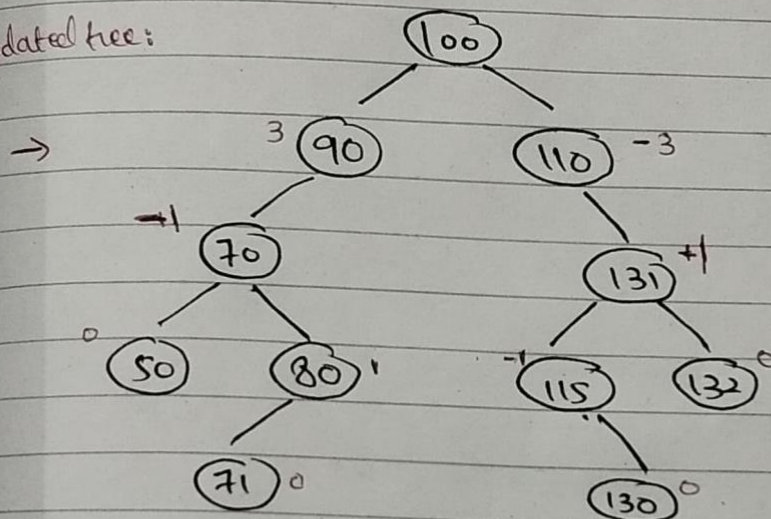 dated tree:
100
→ 3 90 110 -3
-1 70 131 +1
0 50 80 1 -1 115 132 0
71 0 130 0